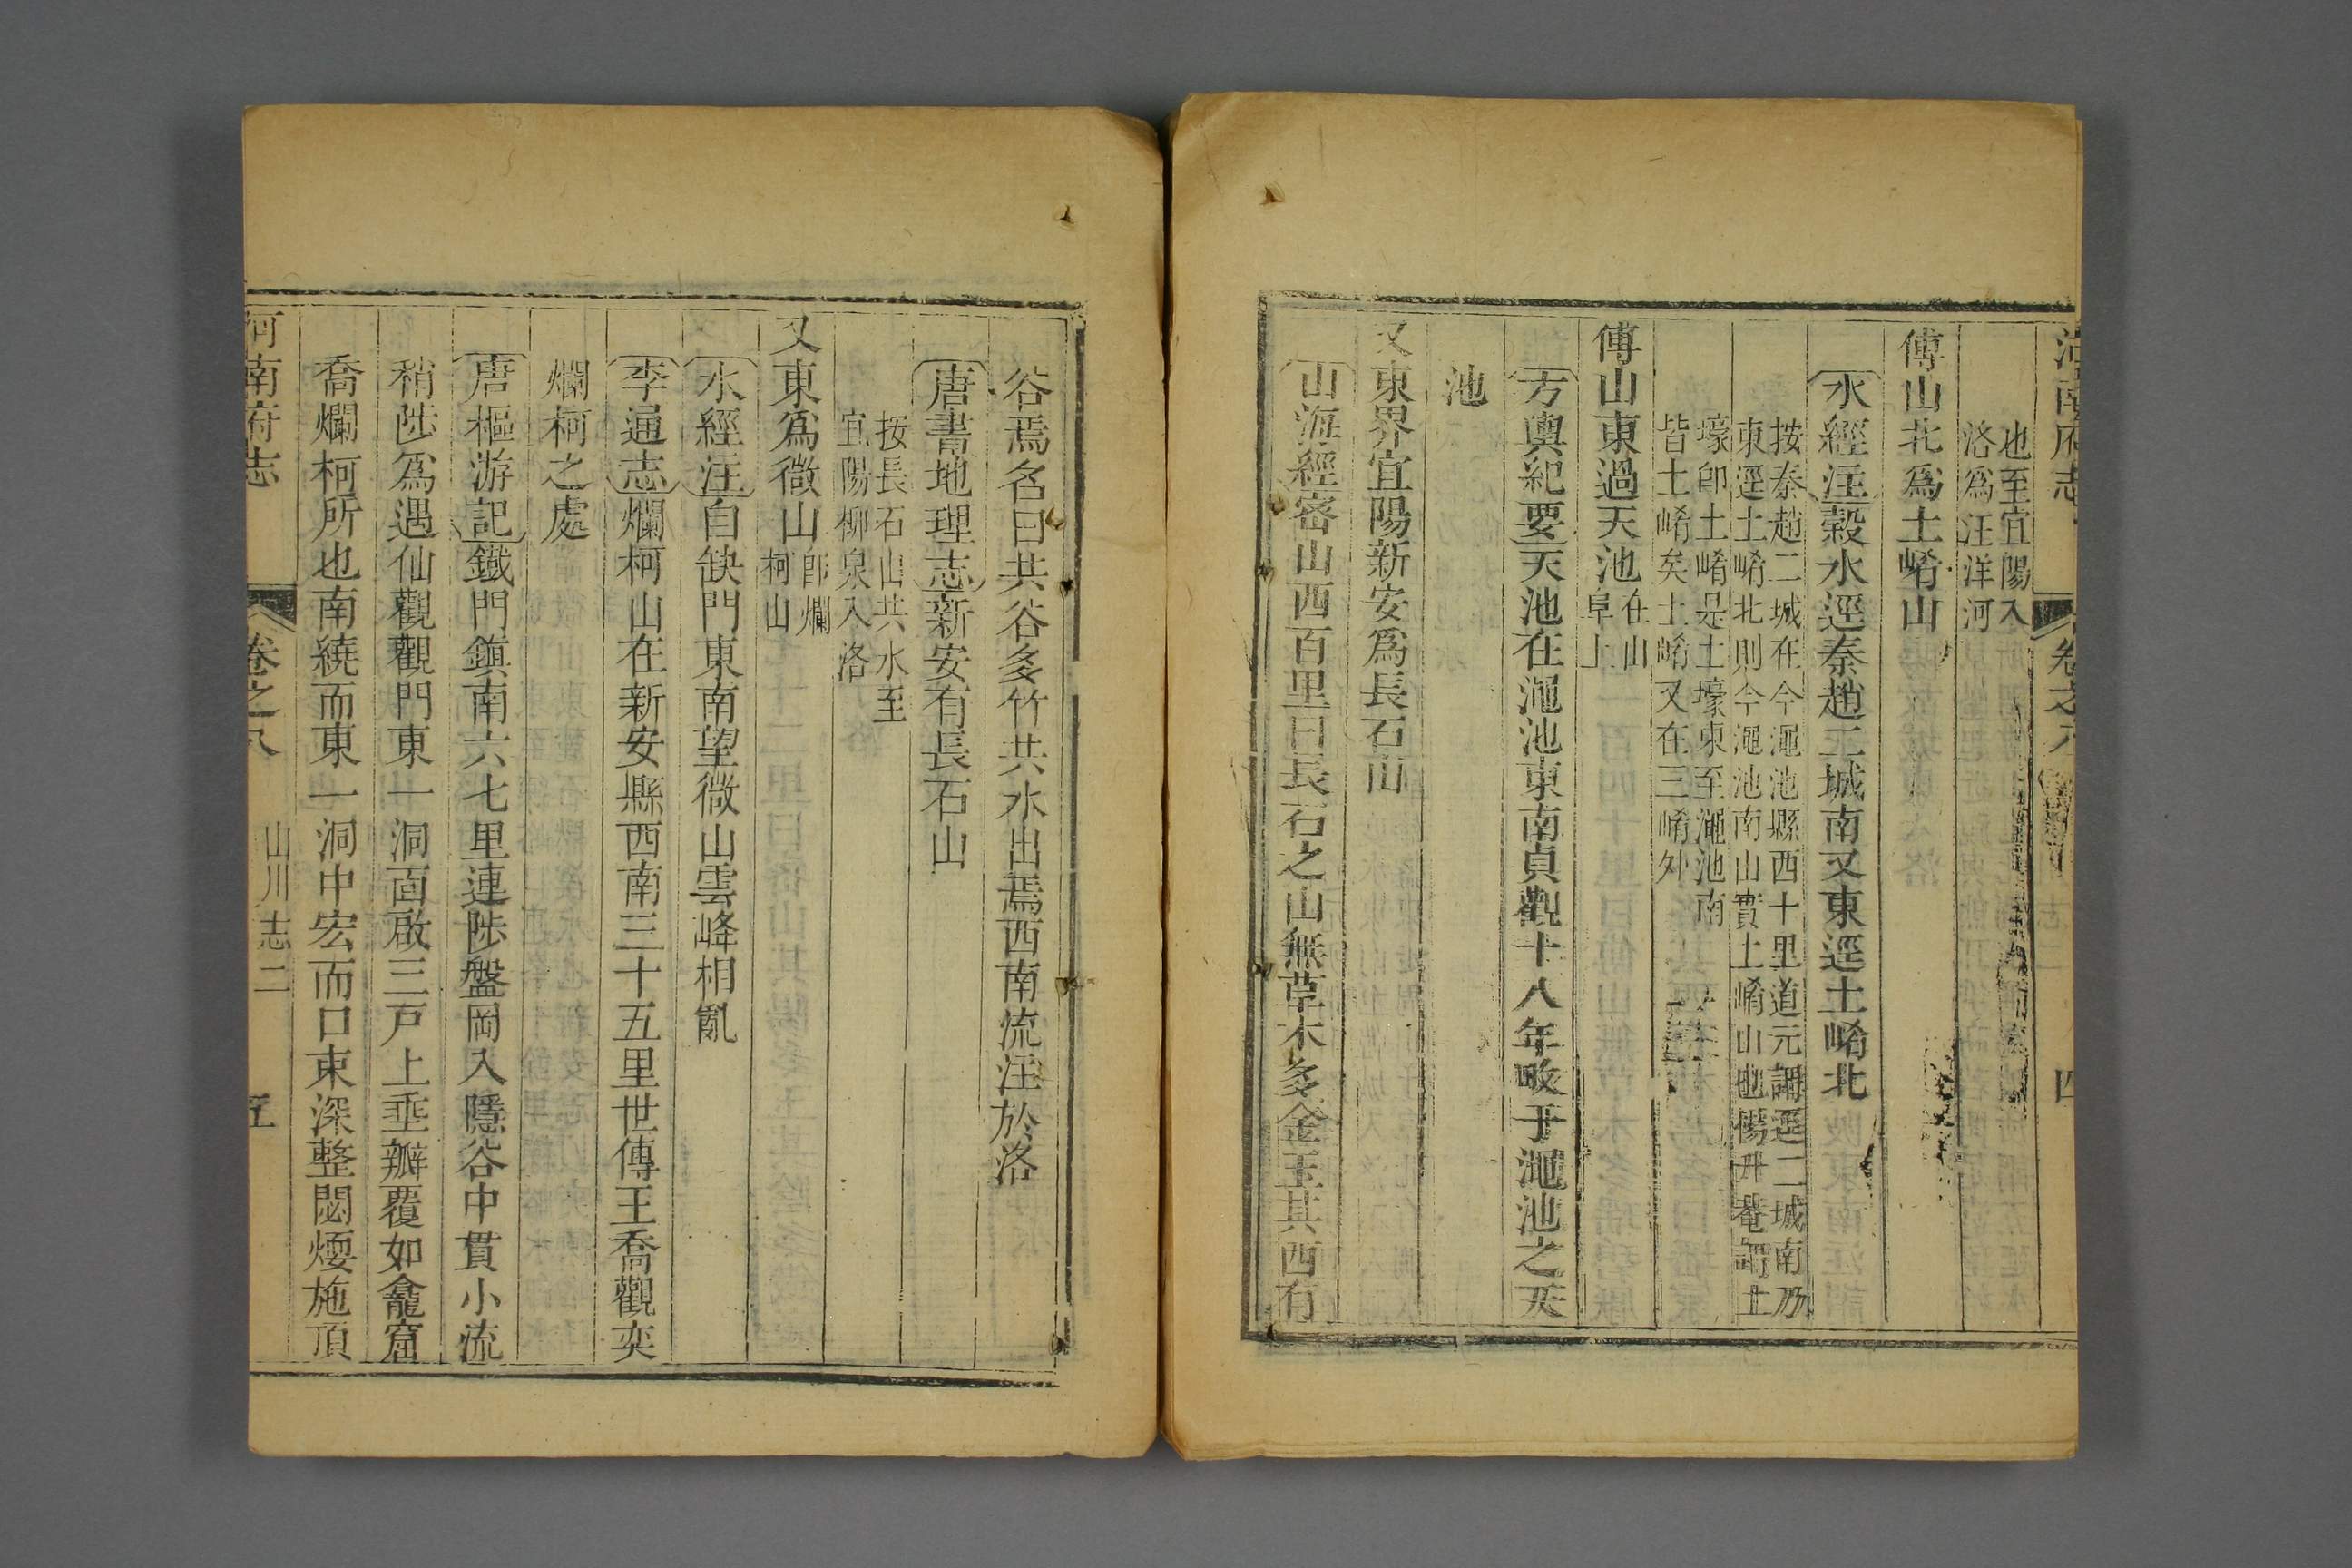 河南府志
卷之八
四
也至宜陽入
洛爲汪洋河
傅山北爲土崤山
水經注穀水逕秦趙二城南又東逕土崤北
按秦趙二城在今澠池縣西十里道元謂逕二城南乃
東逕土崤北則今澠池南山實土崤山也楊升菴謂土
壕卽土崤是土壕東至澠池南
皆土崤矣土崤又在三崤外
傅山東過天池在山
阜上
方輿紀要天池在澠池東南貞觀十八年畋于澠池之天
池
又東界宜陽新安爲長石山
山海經密山西百里曰長石之山無草木多金玉其西有
谷焉名曰共谷多竹共水出焉西南流注於洛
唐書地理志新安有長石山
按長石山共水至
宜陽柳泉入洛
又東爲微山卽爛
柯山
水經注自缺門東南望微山雲峰相亂
李通志爛柯山在新安縣西南三十五里世傳王喬觀奕
爛柯之處
唐樞游記鐵門鎮南六七里連陟盤岡入隱谷中貫小流
稍陟爲遇仙觀觀門東一洞面啟三戸上垂瓣覆如龕窟
喬爛柯所也南繞而東一洞中宏而口東深整閟煗施頂
河南府志
卷之八
山川志二
五